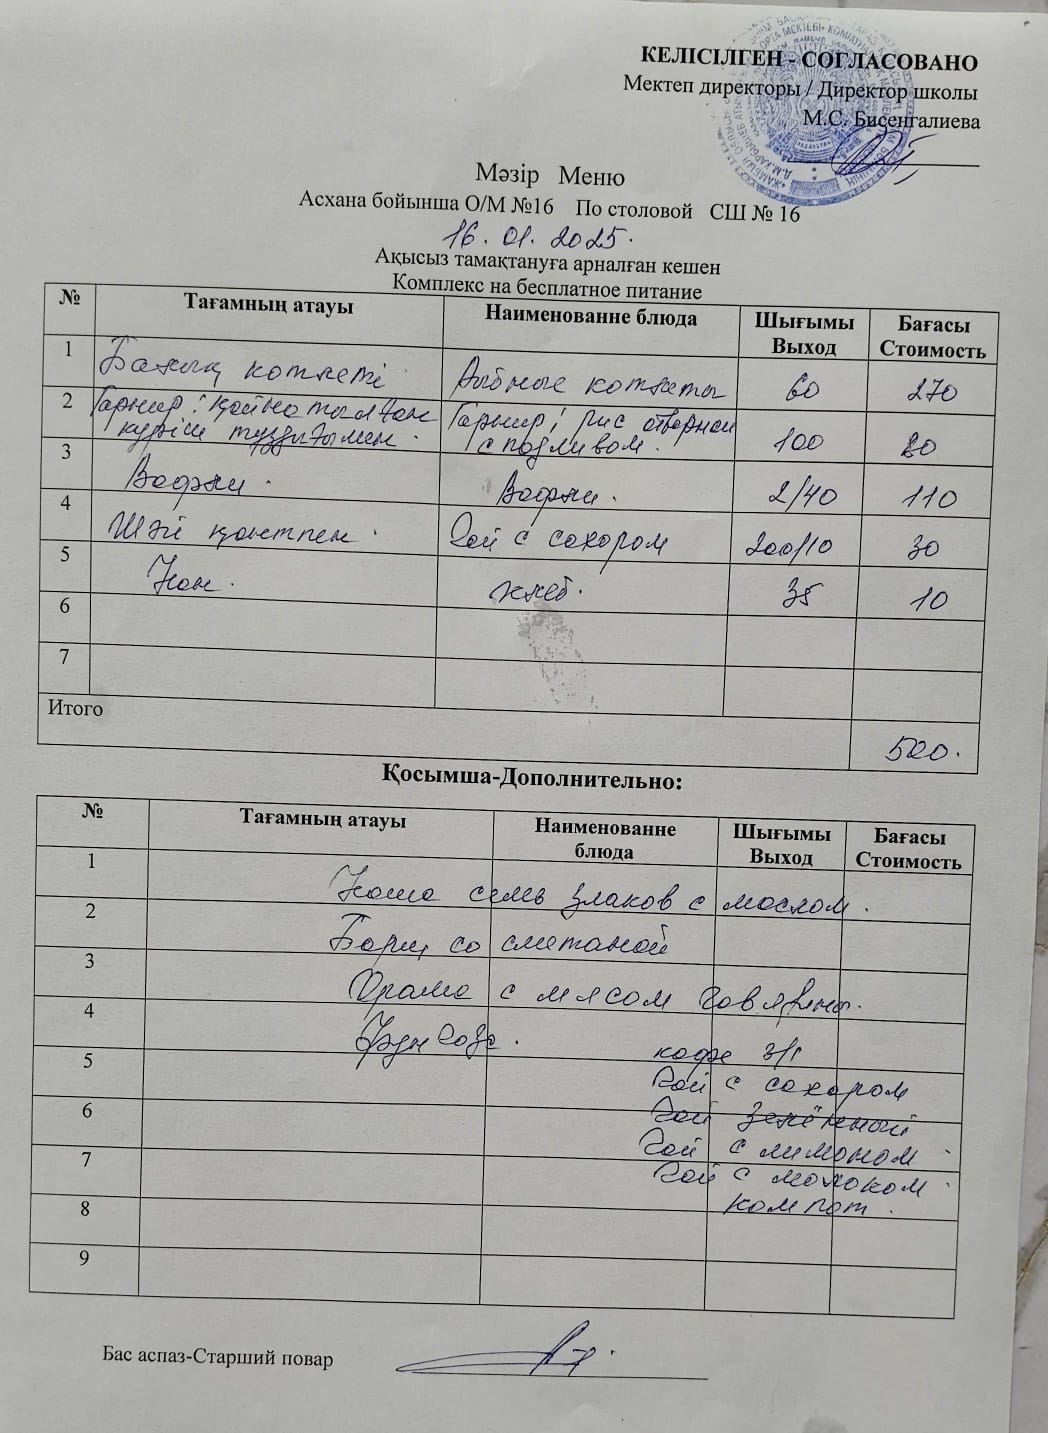 КЕЛІСІЛГЕН - СОГЛАСОВАНО
Мектеп директоры / Директор школы
М.С. Бисенгалиева
Мәзір Меню
Асхана бойынша О/М №16 По столовой СШ № 16
16.01.2025.
Ақысыз тамақтануға арналған кешен
Комплекс на бесплатное питание
№ Тағамның атауы Наименованне блюда Шығымы Выход Бағасы Стоимость
1 Балық котлеті Рыбные котлеты 60 270
2 Гарнир: қайнатылған күріш тұздығымен. Гарнир: рис отварной с подливом. 100 80
3 Вафли. Вафли. 2/40 110
4 Шәй қантпен. Чай с сахором 200/10 30
5 Нан. хлеб. 35 10
6
7
Итого 500.
Қосымша-Дополнительно:
№ Тағамның атауы Наименованне блюда Шығымы Выход Бағасы Стоимость
1 Каша семь злаков с маслом.
2 Борщ со сметаной
3 Орама с мясом говядины.
4 Фунчоза.
кофе 3/1
5 Чай с сахором
6 Чай зелёный
Чай с лимоном
7 Чай с молоком
компот.
8
9
Бас аспаз-Старший повар